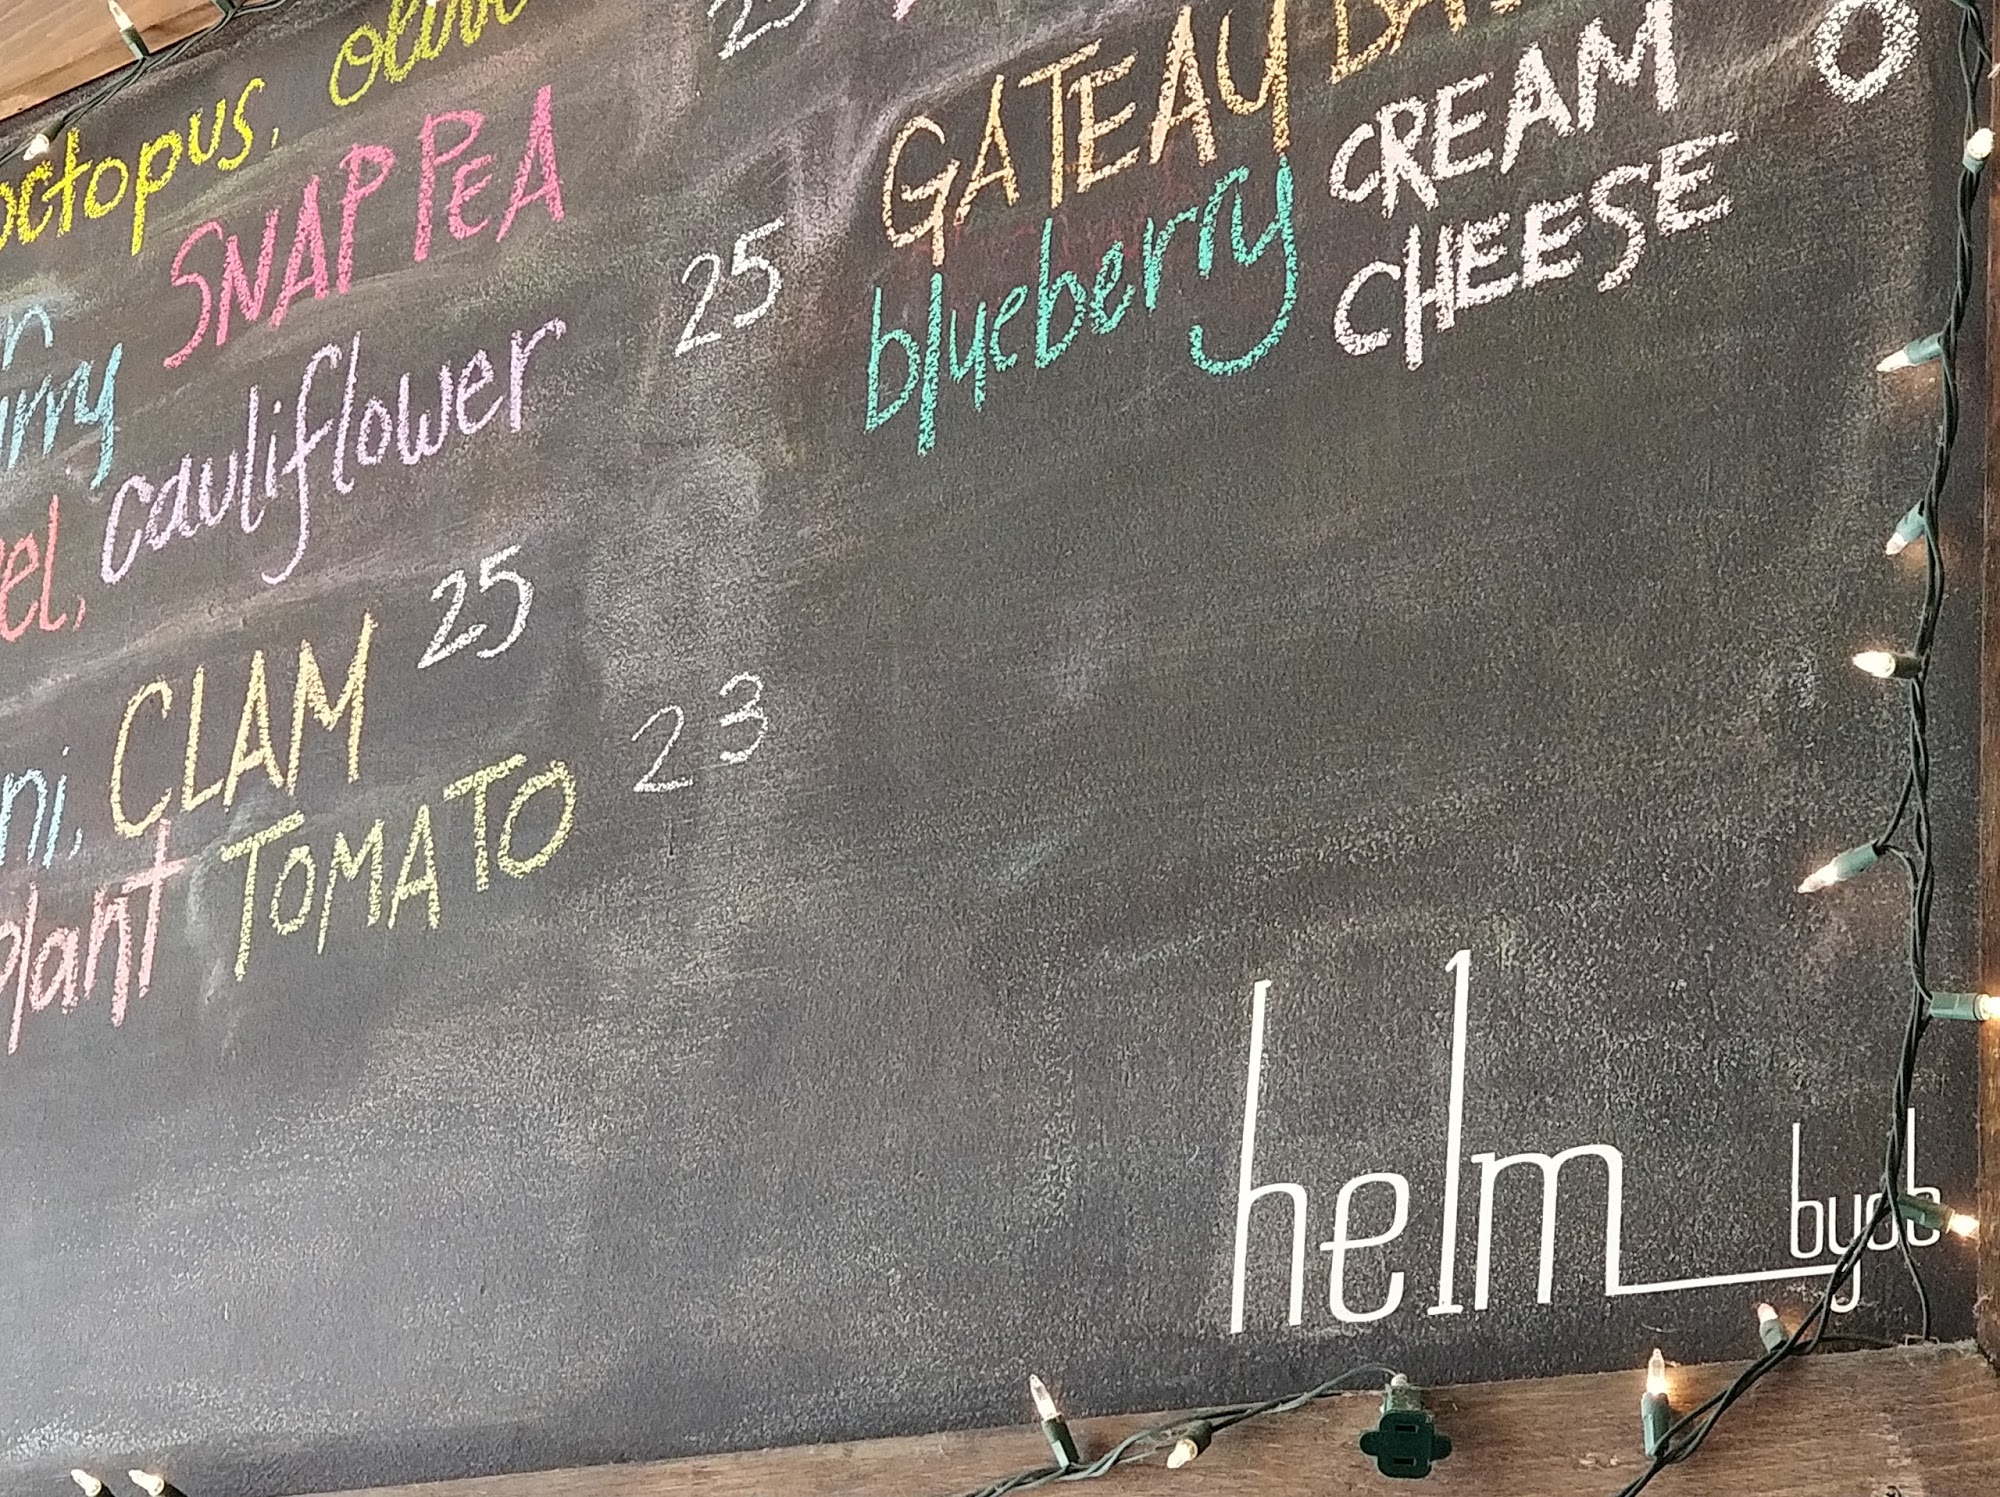 octopus, olive
SNAP PEA
cauliflower 25
CLAM 25
TOMATO 23
GATEAU
blueberry CREAM
CHEESE
helm byob